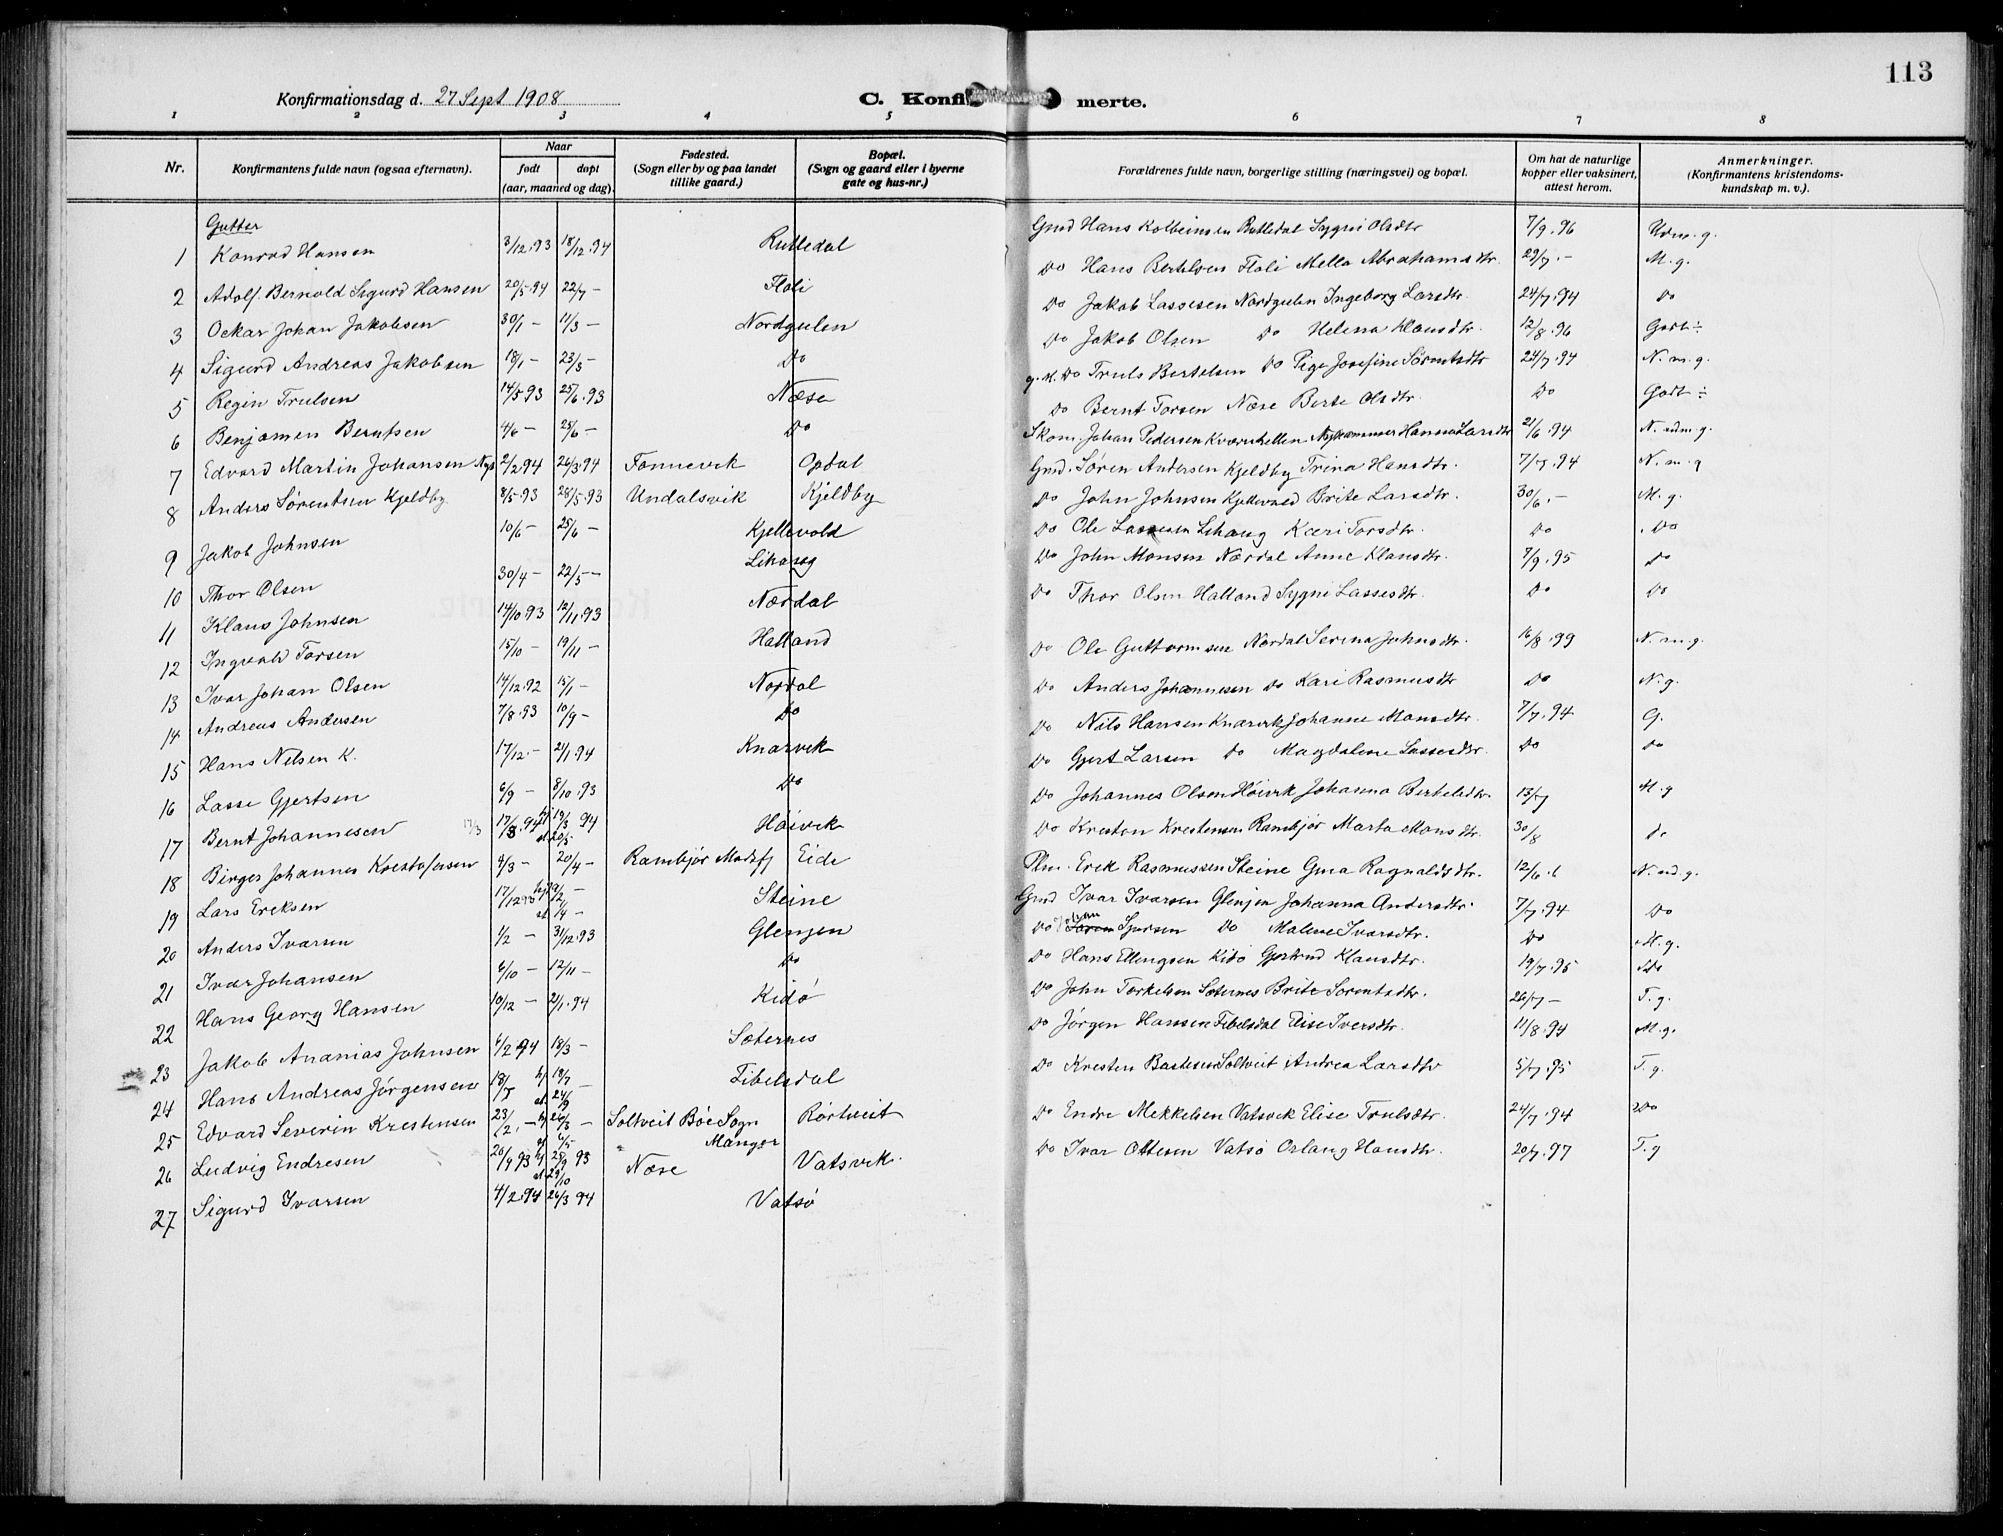 113
Konfirmationsdag d. 27 Sept 1908
C. Konfi merte.
1 2 3 4 5 6 7 8
Nr.
Konfirmantens fulde navn (ogsaa efternavn).
Naar
født døpt
(aar, maaned og dag).
Fødested.
(Sogn eller by og paa landet
tillike gaard.)
Bopæl.
(Sogn og gaard eller i byerne
gate og hus-nr.)
Forældrenes fulde navn, borgerlige stilling (næringsvei) og bopæl.
Om hat de naturlige
kopper eller vaksinert,
attest herom.
Anmerkninger.
(Konfirmantens kristendoms-
kundskap m. v.).
Gutter
1 Konrad Hansen 3/12.93 18/12.94 Rutledal Gmd Hans Kolbeinsen Rutledal Sygni Olsdtr 7/9.96 Udm. g.
2 Adolf Bernold Sigurd Hansen 20/5.94 22/7 — Floli Do Hans Bertelsen Floli Mella Abrahamsdtr 29/7.— M. g.
3 Ockar Johan Jakobsen 30/1 — 11/3 — Nordgulen Do Jakob Lassesen Nordgulen Ingeborg Larsdtr. 24/7.94 Do
4 Sigurd Andreas Jakobsen 18/1 — 23/3 — Do Do Jakob Olsen Do Helena Klausdtr. 12/8.96 Godt ÷
5 Regin Trulsen 14/5.93 25/6.93 Næse g. M. Do Truls Bertelsen Do Pige Josefine Sørentsdtr 24/7.94 N. m. g.
6 Benjamen Berntsen 4/6 — 25/6 — Do Do Bernt Torsen Næse Berte Olsdtr. Do Godt ÷
7 Edvard Martin Johansen 2/2.94 26/3.94 Tonnevik Opdal Skom. Johan Pedersen Kværnhellen Hanna Larsdtr 21/6.94 N. udm. g.
8 Anders Sørentsen Kjeldby 8/5.93 28/5.93 Undalsvik Kjeldby Gmd. Søren Andersen Kjeldby Trina Hansdtr. 7/7.94 N. m. g
9 Jakob Johnsen 10/6 — 25/6 — Kjellevold Do John Johnsen Kjellevold Brite Larsdtr. 30/6.— M. g.
10 Thor Olsen 30/4 — 22/5 — Lihaug Do Ole Lassesen Lihaug Kari Torsdtr. Do Do
11 Klaus Johnsen 14/10.93 12/11.93 Nærdal Do John Monsen Nærdal Anne Klausdtr. 7/9.95 Do
12 Ingvald Torsen 15/10 — 19/11 — Halland Do Thor Olsen Halland Sygni Lassesdtr. Do Do
13 Ivar Johan Olsen 14/12.92 15/1 — Nordal Do Ole Guttormsen Nordal Serina Johnsdtr. 16/8.99 N. m. g.
14 Andreas Andersen 7/8.93 10/9 — Do Do Anders Johannesen Do Kari Rasmusdtr Do N. g.
15 Hans Nilsen K. 17/12.— 21/1.94 Knarvik Do Nils Hansen Knarvik Johanne Monsdtr. 7/7.94 G.
16 Lasse Gjertsen 6/9 — 8/10.93 Do Do Gjert Larsen Do Magdalene Lassesdtr. Do Do
17 Bernt Johannesen 17/3 17/3.94 hj 19/3 94 st 20/5 Høivik Do Johannes Olsen Høivik Johanna Bertelsdtr. 13/7 M. g
18 Birger Johannes Krestofersen 4/3 — 20/4 — Rambjør Masfj Eide Do Kresten Krestensen Rambjør Marta Monsdtr. 30/8 do
19 Lars Ereksen 17/12.93 Steine Plm. Erek Rasmussen Steine Gina Ragnaldsdtr. 12/6 N. ud. g.
20 Anders Ivarsen 1/2 — 31/12.93 Glenjen Gmd Ivar Ivarsen Glenjen Johanna Andersdtr. 7/7.94 Do
21 Ivar Johansen 6/10 — 12/11 — Do Do Johan Do Malene Ivarsdtr. Do M. g.
22 Hans Georg Hansen 10/12 — 21/1.94 Kidø Do Hans Ellingsen Kidø Gjertrud Klausdtr. 19/7.95 Do
23 Jakob Ananias Johnsen 6/2 94 18/3 — Sæternes Do John Torkelsen Sæternes Brite Sørentsdtr. 26/7 — T. g.
24 Hans Andreas Jørgensen 18/5 hj 18/7 — st 24/9 Tibelsdal Do Jørgen Hansen Tibelsdal Elise Iversdtr. 11/8.94 M. g.
25 Edvard Severin Krestensen 23/2 — hj 26/3 — st 6/5 Soltveit Bøe Sogn Manger Rørtveit Do Kresten Soltveit Andrea Larsdtr 5/7.95 T. g.
26 Ludvig Endresen 20/9 93 hj 25/9 93 st 29/10 Næse Vatsvik Do Endre Mekkelsen Vatsvik Elise Trulsdtr. 24/7.94 Do
27 Sigurd Ivarsen 4/2.94 26/3 94 Vatsø Do Ivar Ottesen Vatsø Orlaug Hansdtr. 20/7.97 T. g